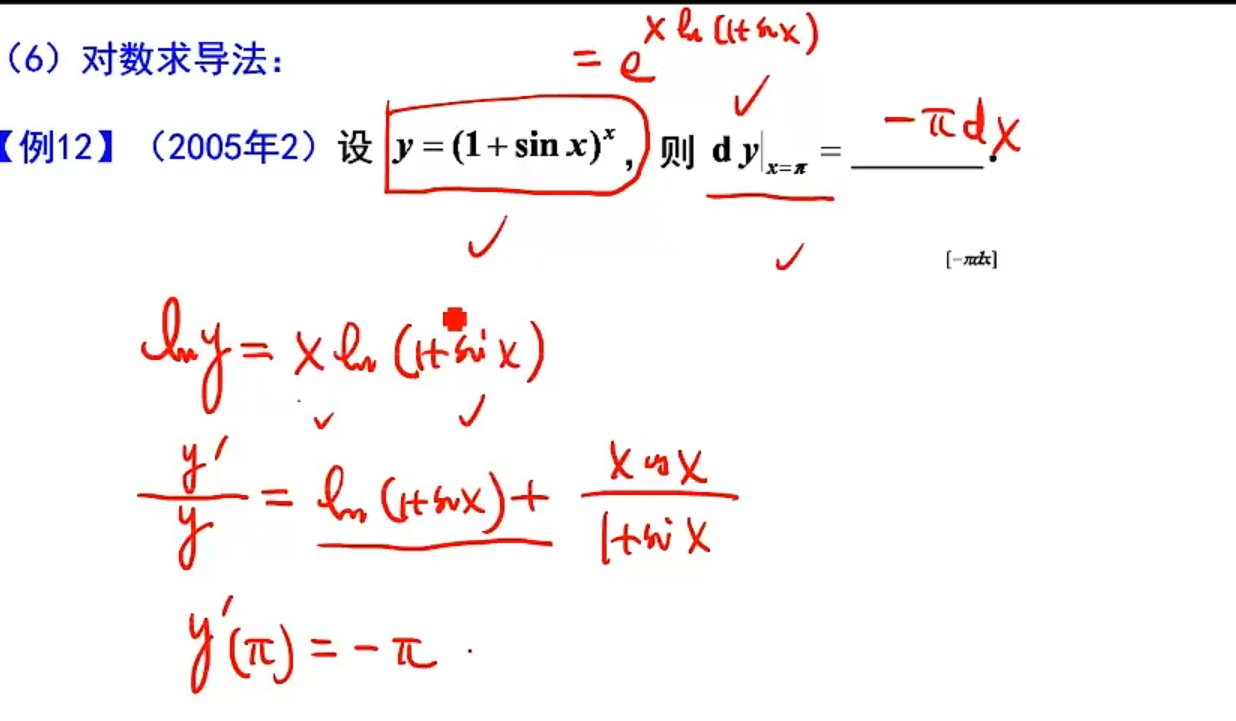 （6）对数求导法：
= e^{x ln(1+sin x)}
【例12】（2005年2）设 y = (1 + sin x)^x, 则 d y|_{x=π} = ________.
-π dx
[-πdx]
ln y = x ln (1+sin x)
y'/y = ln (1+sin x) + x cos x / 1+sin x
y'(π) = -π